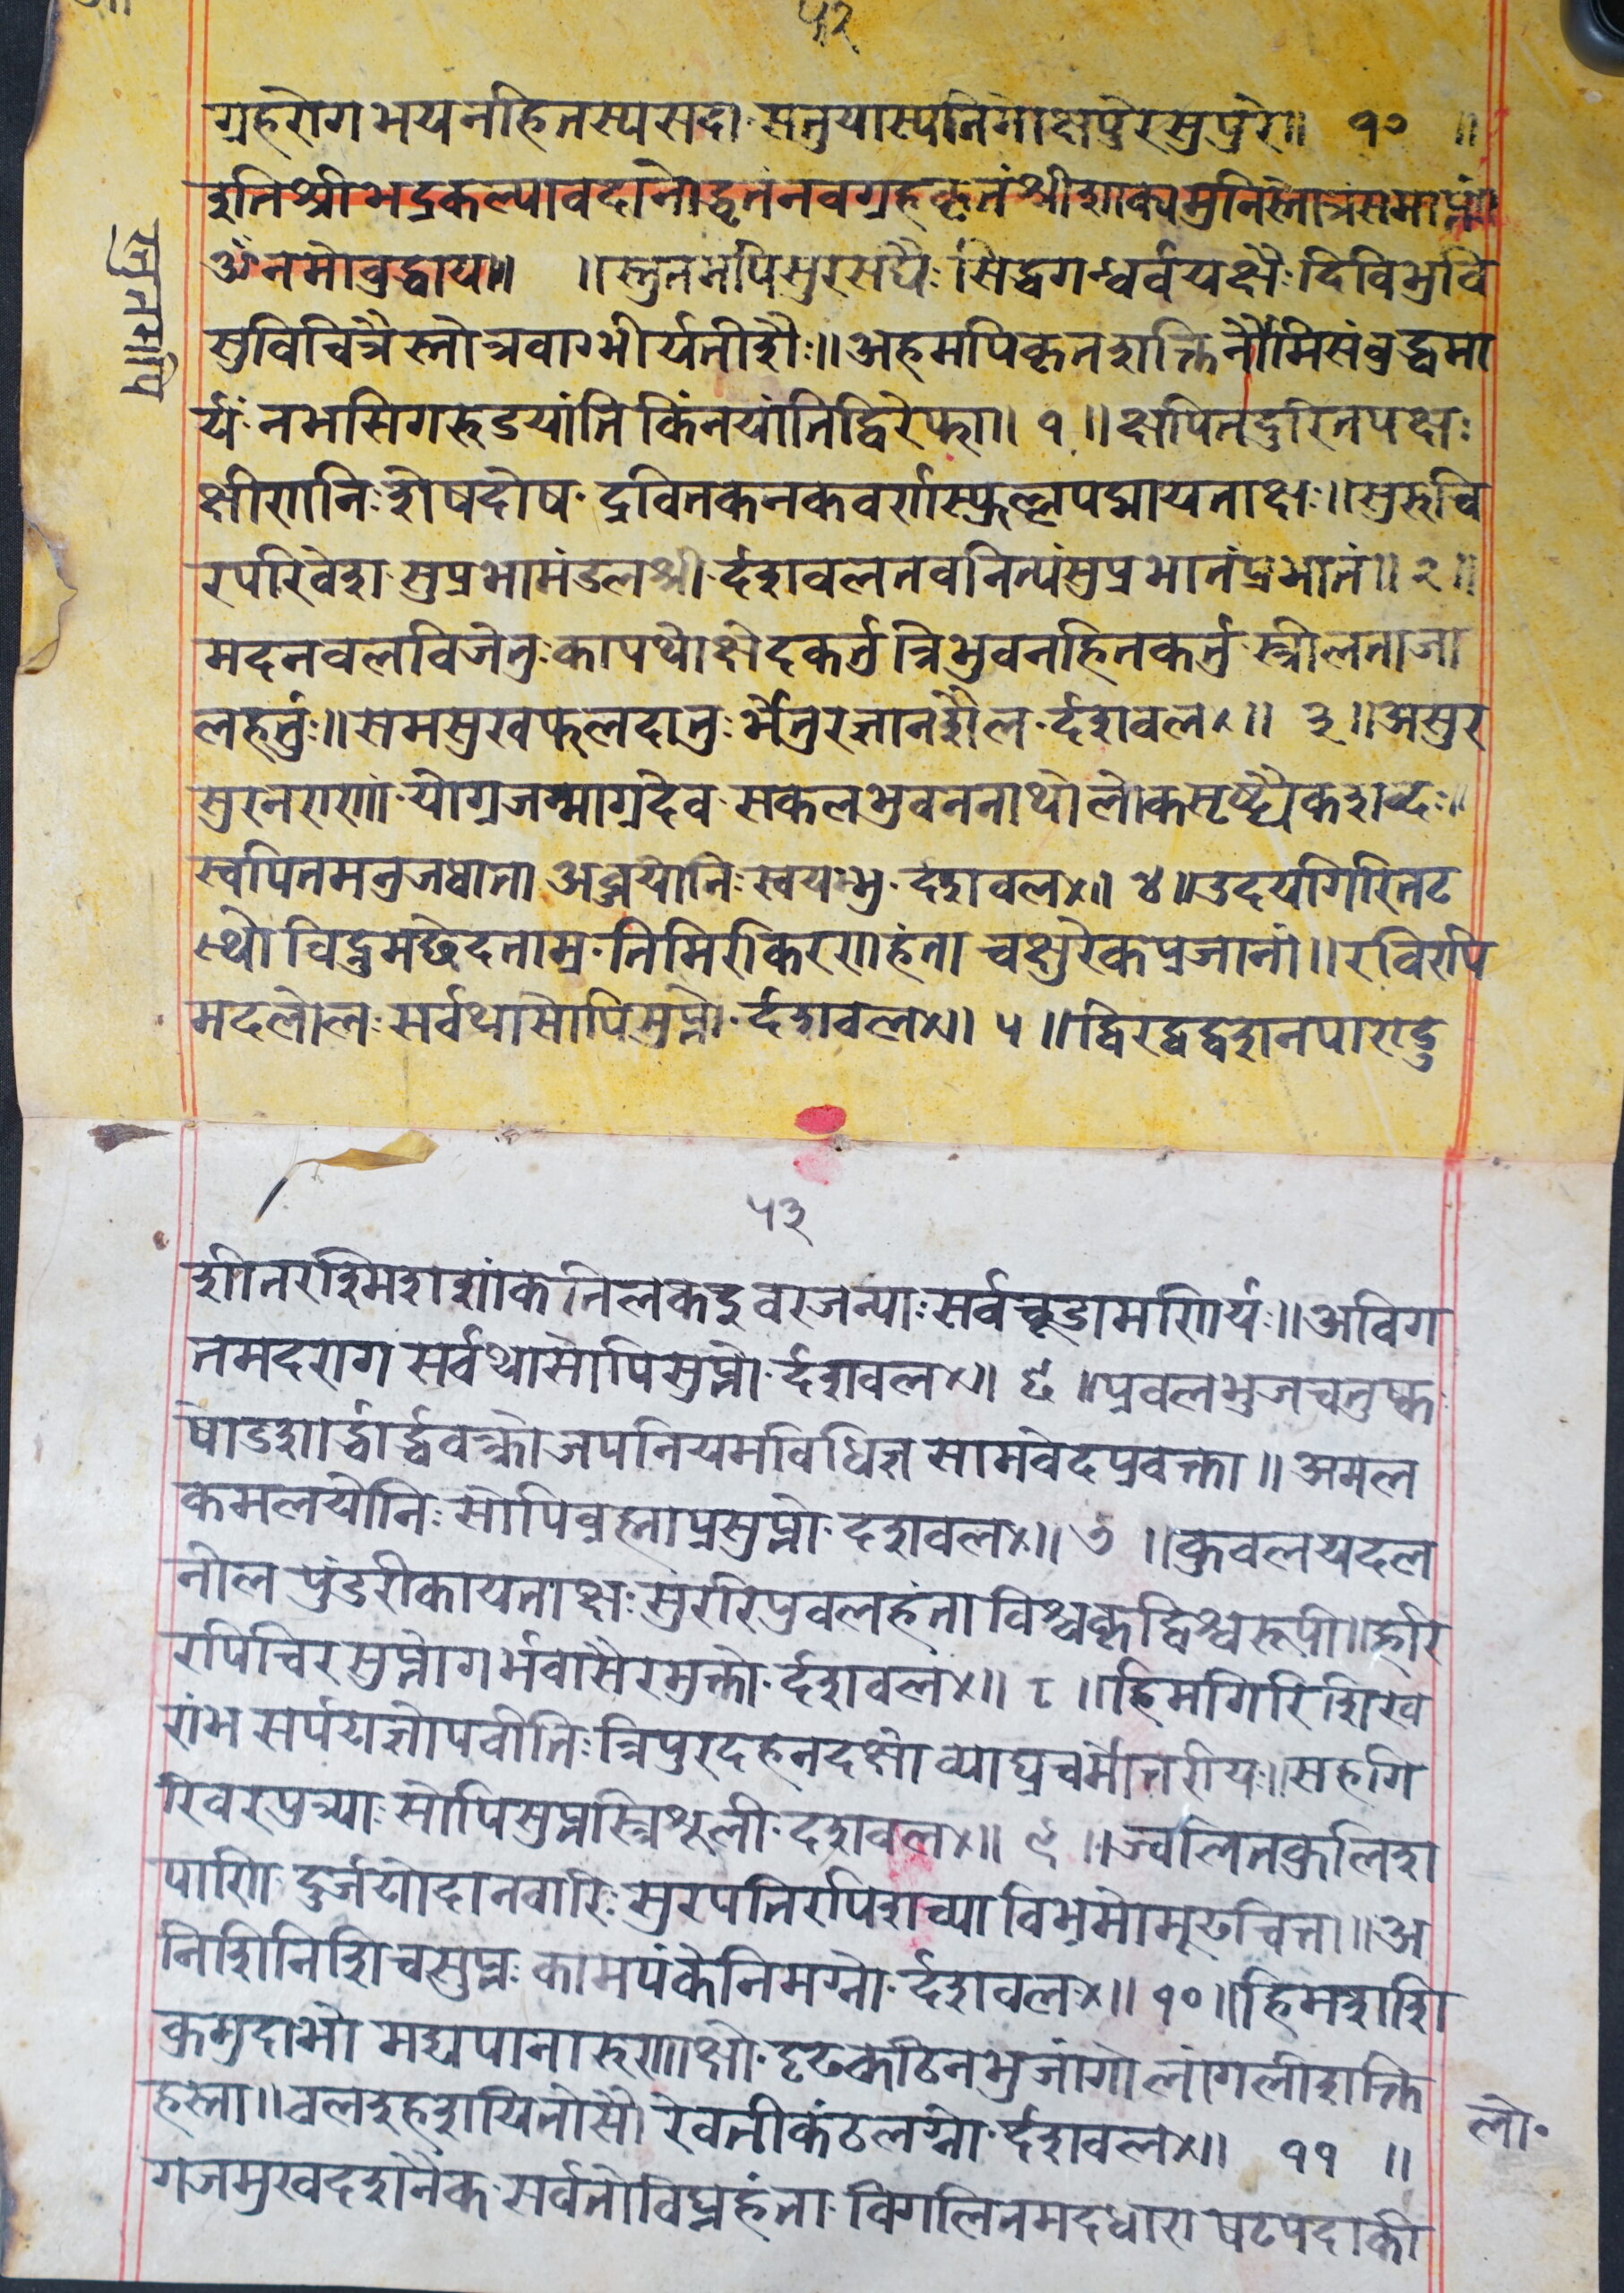 ५२
ग्रहरोगभयनहितस्यसदा·सतुयास्यतिमोक्षपुरेसुपुरे॥ १० ॥
इतिश्रीभद्रकल्पावदानोद्धृतंनवग्रहकृतंश्रीशाक्यमुनिस्तोत्रंसमाप्तं॥
ॐनमोबुद्धाय॥ ॥स्तुतमपिसुरसंघैः सिद्धगन्धर्वयक्षैः दिविभुवि
स्तुतमपि
सुविचित्रैस्तोत्रवाग्भीर्यतीशैः॥अहमपिकृतशक्तिर्नौमिसंबुद्धमा
र्यं नभसिगरुडयांति किंनयांतिद्विरेफा॥ १ ॥क्षपितदुरितपक्षः
क्षीणनिःशेषदोष·द्रवितकनकवर्णस्फुल्लपद्मायताक्षः॥सुरुचि
रपरिवेश·सुप्रभामंडलश्री·र्दशवलतवनित्यंसुप्रभातंप्रभातं॥ २ ॥
मदनवलविजेतुः कापथोक्षेदकर्तु त्रिभुवनहितकर्तु स्त्रीलताजा
लहर्तुः॥समसुखफलदातु र्भेत्तुरज्ञानशैल·र्दशवल×॥ ३ ॥असुर
सुरनराणां·योग्रजन्माग्रदेव·सकलभुवननाथोलोकसृष्ट्यैकशब्दः॥
स्वपितमनुजधाता अब्जयोनिः स्वयम्भु·र्दशवल×॥ ४ ॥उदयगिरितट
स्थो विद्रुमच्छेदताम्र·तिमिरकिरणहंता चक्षुरेकप्रजानां॥रविरपि
मदलोलः सर्वथासोपिसुप्तो·र्दशवल×॥ ५ ॥द्विरद्वद्वशनपाराडु
५३
शीतरश्मिशशांक तिलकइवरजन्याः सर्वचूडामणिर्यः॥अविग
तमदराग सर्वथासोपिसुप्तो·र्दशवल×॥ ६ ॥प्रवलभुजचतुष्क·
षोडशार्द्धार्द्धवक्त्रो जपनियमविधिज्ञ सामवेदप्रवक्ता॥ अमल
कमलयोनिः सोपिब्रह्माप्रसुप्तो·दशवल×॥ ७ ॥कुवलयदल
नील पुंडरीकायताक्षः सुररिपुवलहंता विश्वकृद्विश्वरूपी॥हरि
रपिचिरसुप्तोगर्भवासैरमुक्तो·र्दशवल×॥ ८ ॥हिमगिरिशिख
रांभ सर्पयज्ञोपवीतिः त्रिपुरदहनदक्षो व्याघ्रचर्मोत्तरीयः॥सहगि
रिवरपुत्र्याः सोपिसुप्तस्त्रिशूली·दशवल×॥ ९ ॥ज्वलितकुलिश
पाणि·दुर्जयोदानवारिः सुरपतिरपिशच्या विभ्रमोमूढचित्ता॥अ
निशिनिशिचसुप्तः कामपंकेनिमग्नो·र्दशवल×॥ १० ॥हिमशशि
कुमुदाभो मद्यपानारुणाक्षो·दृढकठिनभुजांगो लांगलीशक्ति
हस्ता॥वलइहशयितोसौ रेवतीकंठलग्नो·र्दशवल×॥ ११ ॥
लो॰
गजमुखदशनैक·सर्वतोविघ्नहंता·विगलितमदधारा षटपदार्की